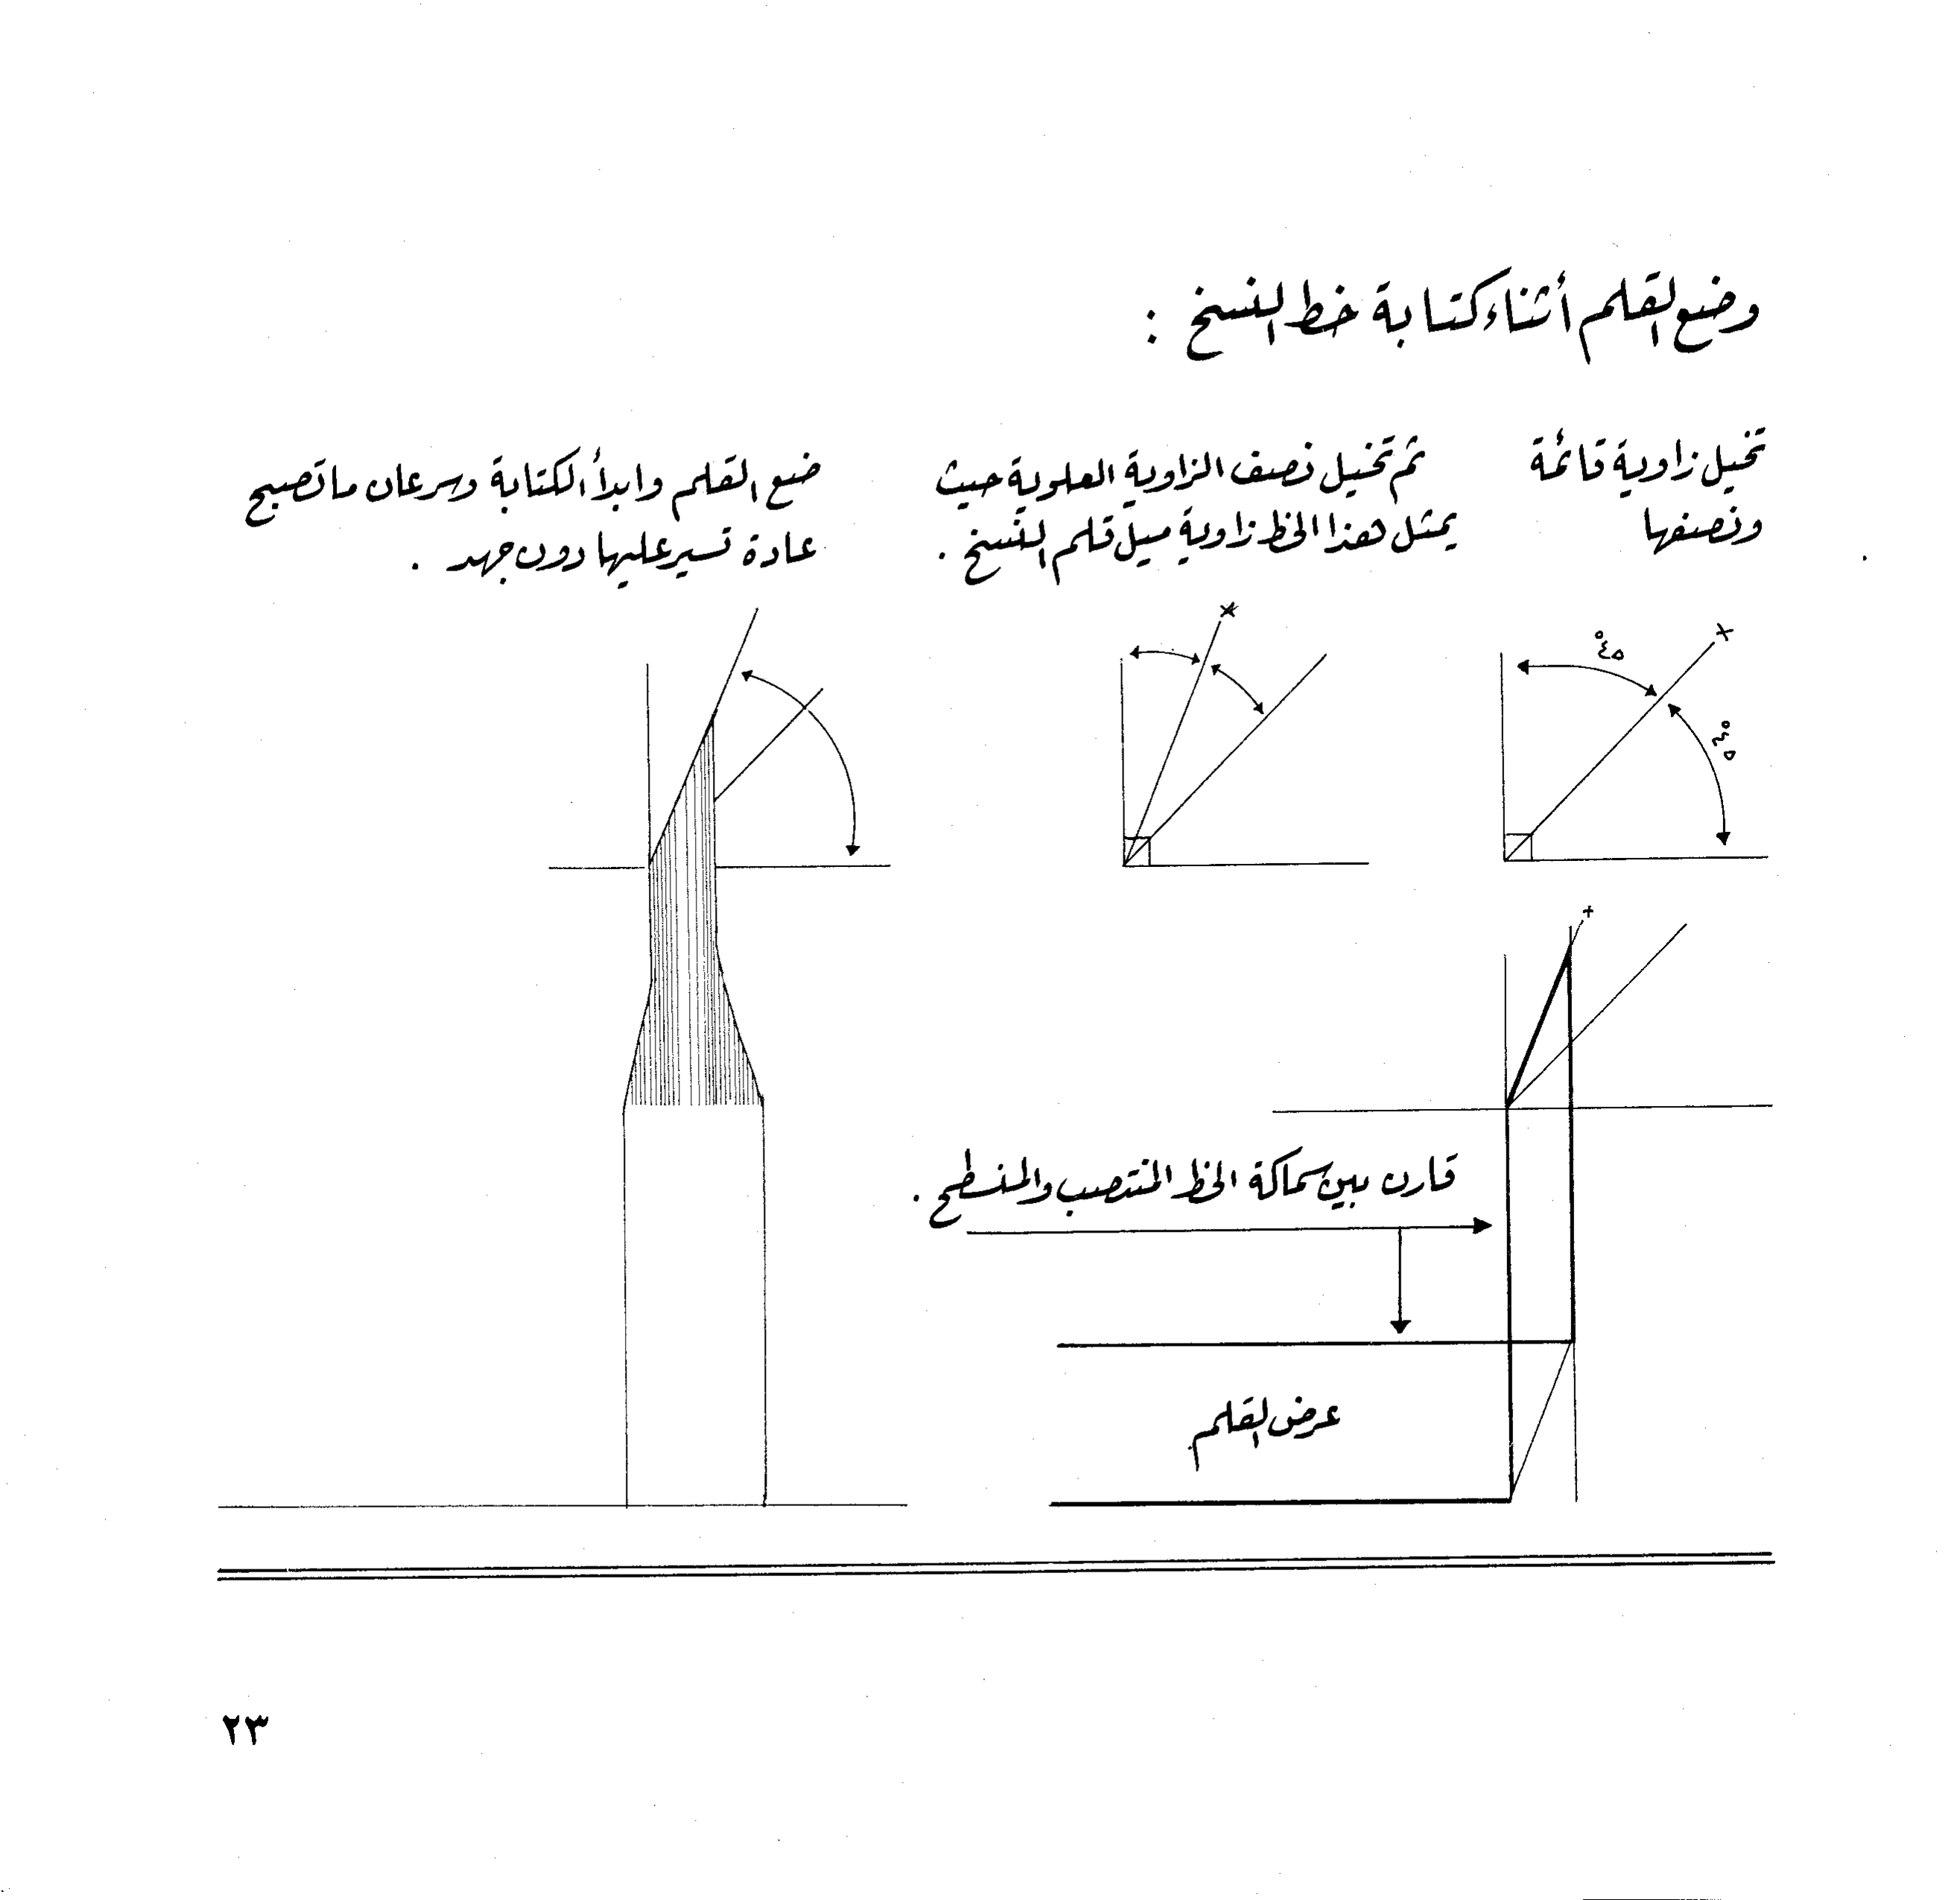 وضع القلم أثناء كتابة خط النسخ :
تخيل زاوية قائمة
ونصفها
ثم تخيل نصف الزاوية العلوية حيث
يمثل هذا الخط زاوية ميل قلم النسخ .
ضع القلم وابدأ الكتابة وسرعان ما تصبح
عادة تسير عليها دون جهد .
٤٥°
٤٥°
قارن بين سماكة الخط المنتصب والمنسطح .
عرض القلم
٢٣